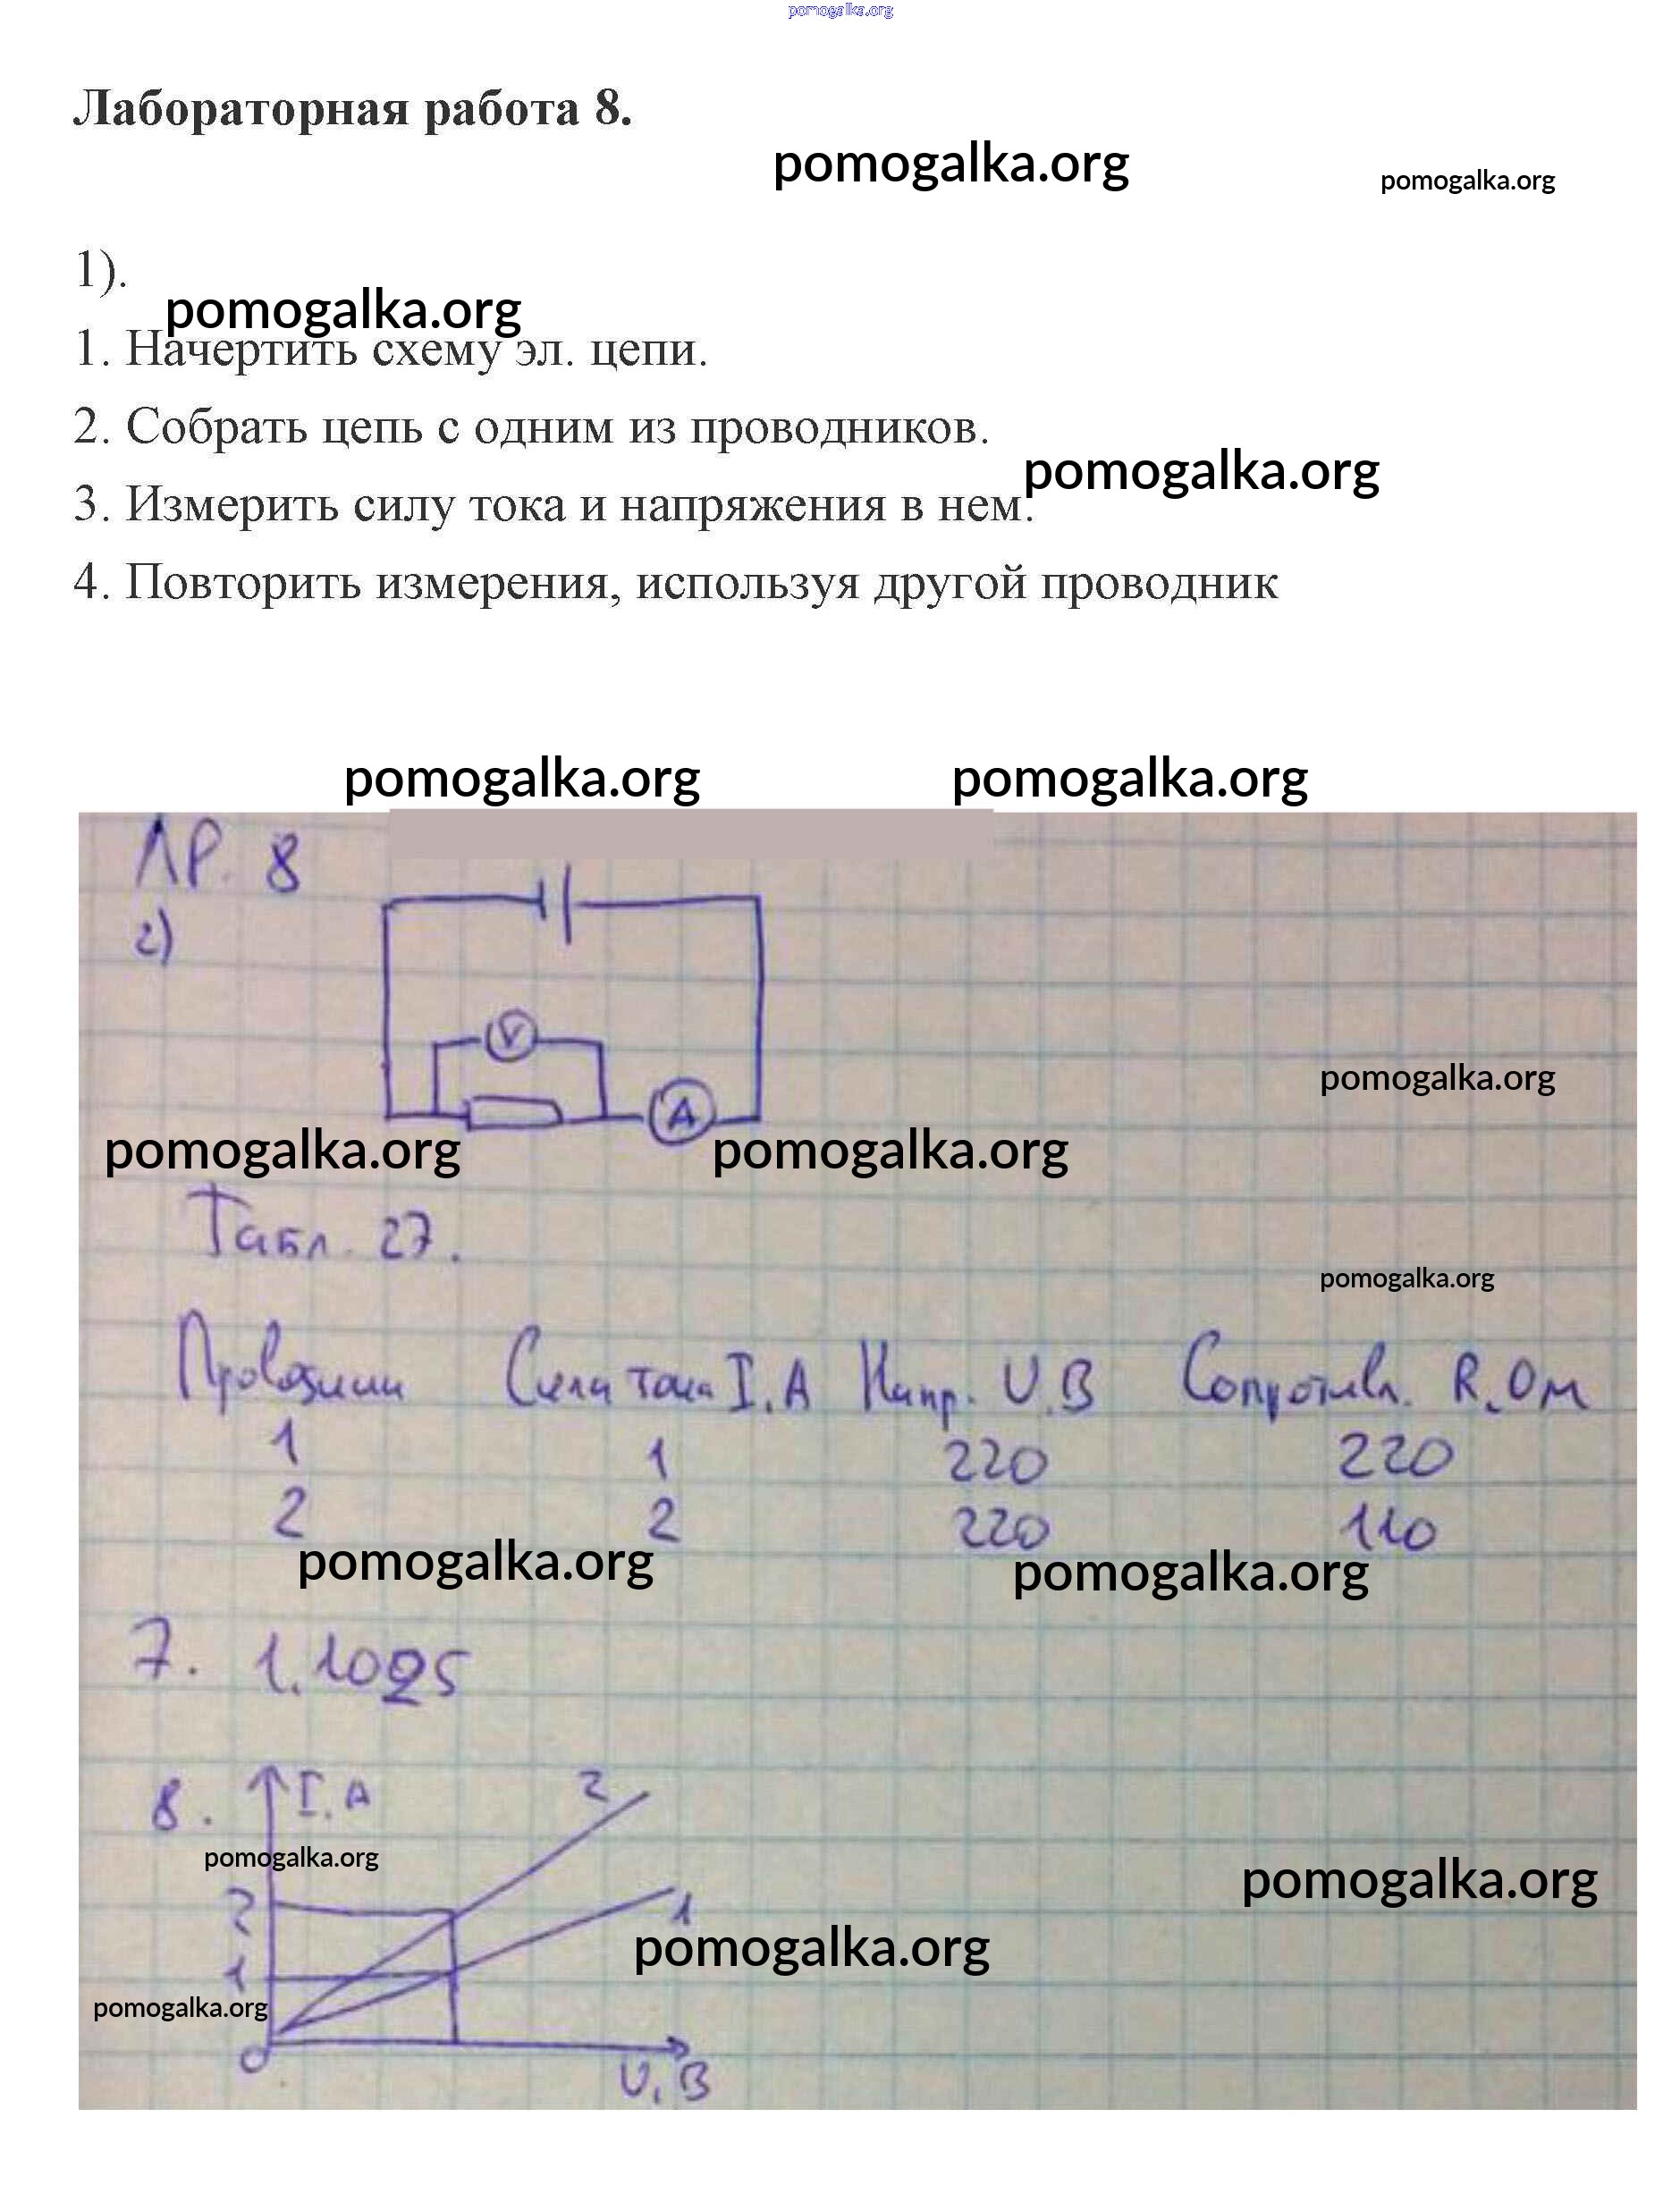 pomogalka.org
Лабораторная работа 8.
pomogalka.org
pomogalka.org
1).
pomogalka.org
1. Начертить схему эл. цепи.
2. Собрать цепь с одним из проводников.
pomogalka.org
3. Измерить силу тока и напряжения в нем.
4. Повторить измерения, используя другой проводник
pomogalka.org pomogalka.org
ЛР. 8
2)
V
pomogalka.org
A
pomogalka.org pomogalka.org
Табл. 27.
pomogalka.org
Сила тока I, А Напр. U, В Сопротивл. R, Ом
1 1 220 220
2 2 220 110
pomogalka.org pomogalka.org
7.
8. I, А 2
pomogalka.org
pomogalka.org
2 1
pomogalka.org
1
pomogalka.org
0
U, В